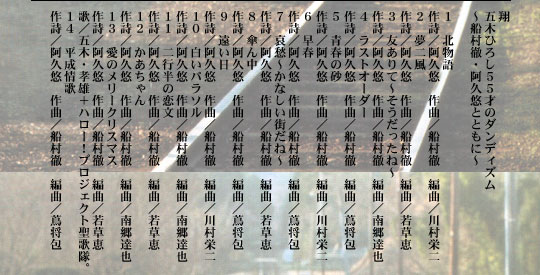 翔
五木ひろし55才のダンディズム
〜船村徹・阿久悠とともに〜
1 北物語
作詩/阿久悠 作曲/船村徹 編曲/川村栄二
2 夢二風
作詩/阿久悠 作曲/船村徹 編曲/若草恵
3 友ありて〜そうだったね〜
作詩/阿久悠 作曲/船村徹 編曲/南郷達也
4 ラストオーダー
作詩/阿久悠 作曲/船村徹 編曲/蔦将包
5 青春の砂
作詩/阿久悠 作曲/船村徹 編曲/川村栄二
6 春
作詩/阿久悠 作曲/船村徹 編曲/蔦将包
7 哀愁〜かなしい街だね〜
作詩/阿久悠 作曲/船村徹 編曲/若草恵
8 傘ん中
作詩/阿久悠 作曲/船村徹 編曲/蔦将包
9 遠い日
作詩/阿久悠 作曲/船村徹 編曲/川村栄二
10 白いパラソル
作詩/阿久悠 作曲/船村徹 編曲/南郷達也
11 二行半の恋文
作詩/阿久悠 作曲/船村徹 編曲/若草恵
12 かあちゃん
作詩/阿久悠 作曲/船村徹 編曲/南郷達也
13 愛のメリークリスマス
作詩/阿久悠 作曲/船村徹 編曲/若草恵
歌/五木・孝雄+ハロー!プロジェクト聖歌隊。
14 平成情歌
作詩/阿久悠 作曲/船村徹 編曲/蔦将包